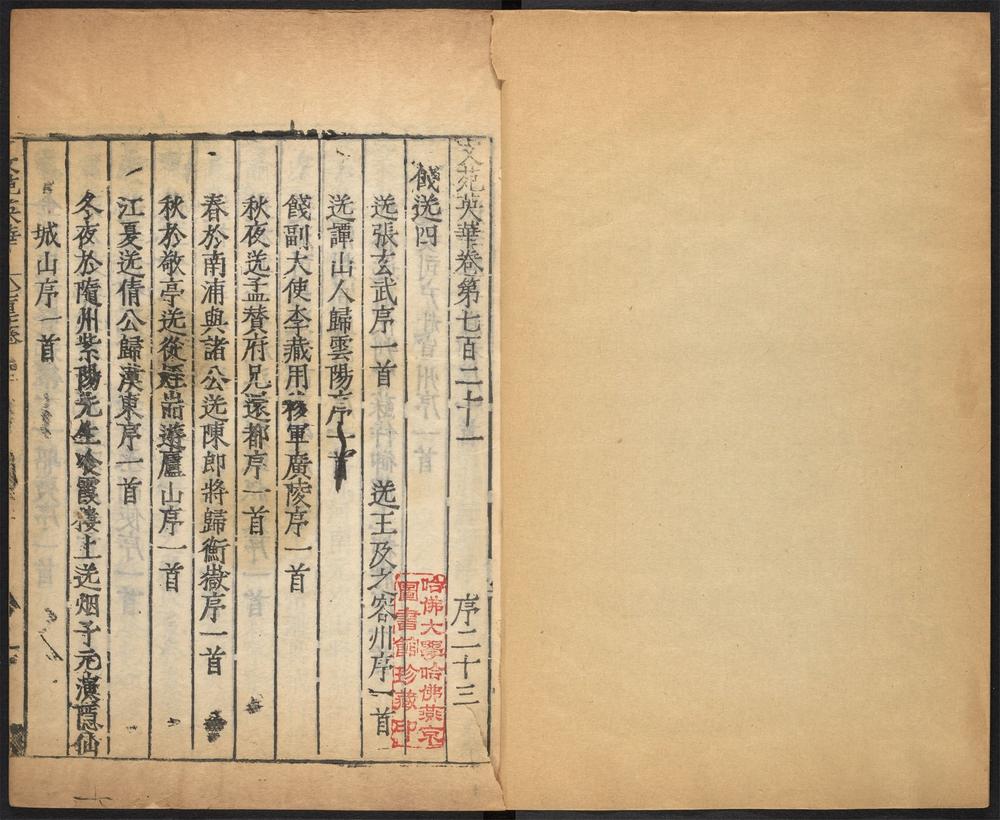 文苑英華卷第七百二十一 序二十三
餞送四
送張玄武序一首 送王及之容州序一首
送譚山人歸雲陽序一首
餞副大使李藏用移軍廣陵序一首
秋夜送孟贊府兄還都序一首
春於南浦與諸公送陳郎將歸衡嶽序一首
秋於敬亭送從姪耑遊廬山序一首
江夏送倩公歸漢東序一首
冬夜於隨州紫陽先生飡霞樓上送烟子元演隱仙
城山序一首
哈佛大學哈佛燕京
圖書館珍藏印